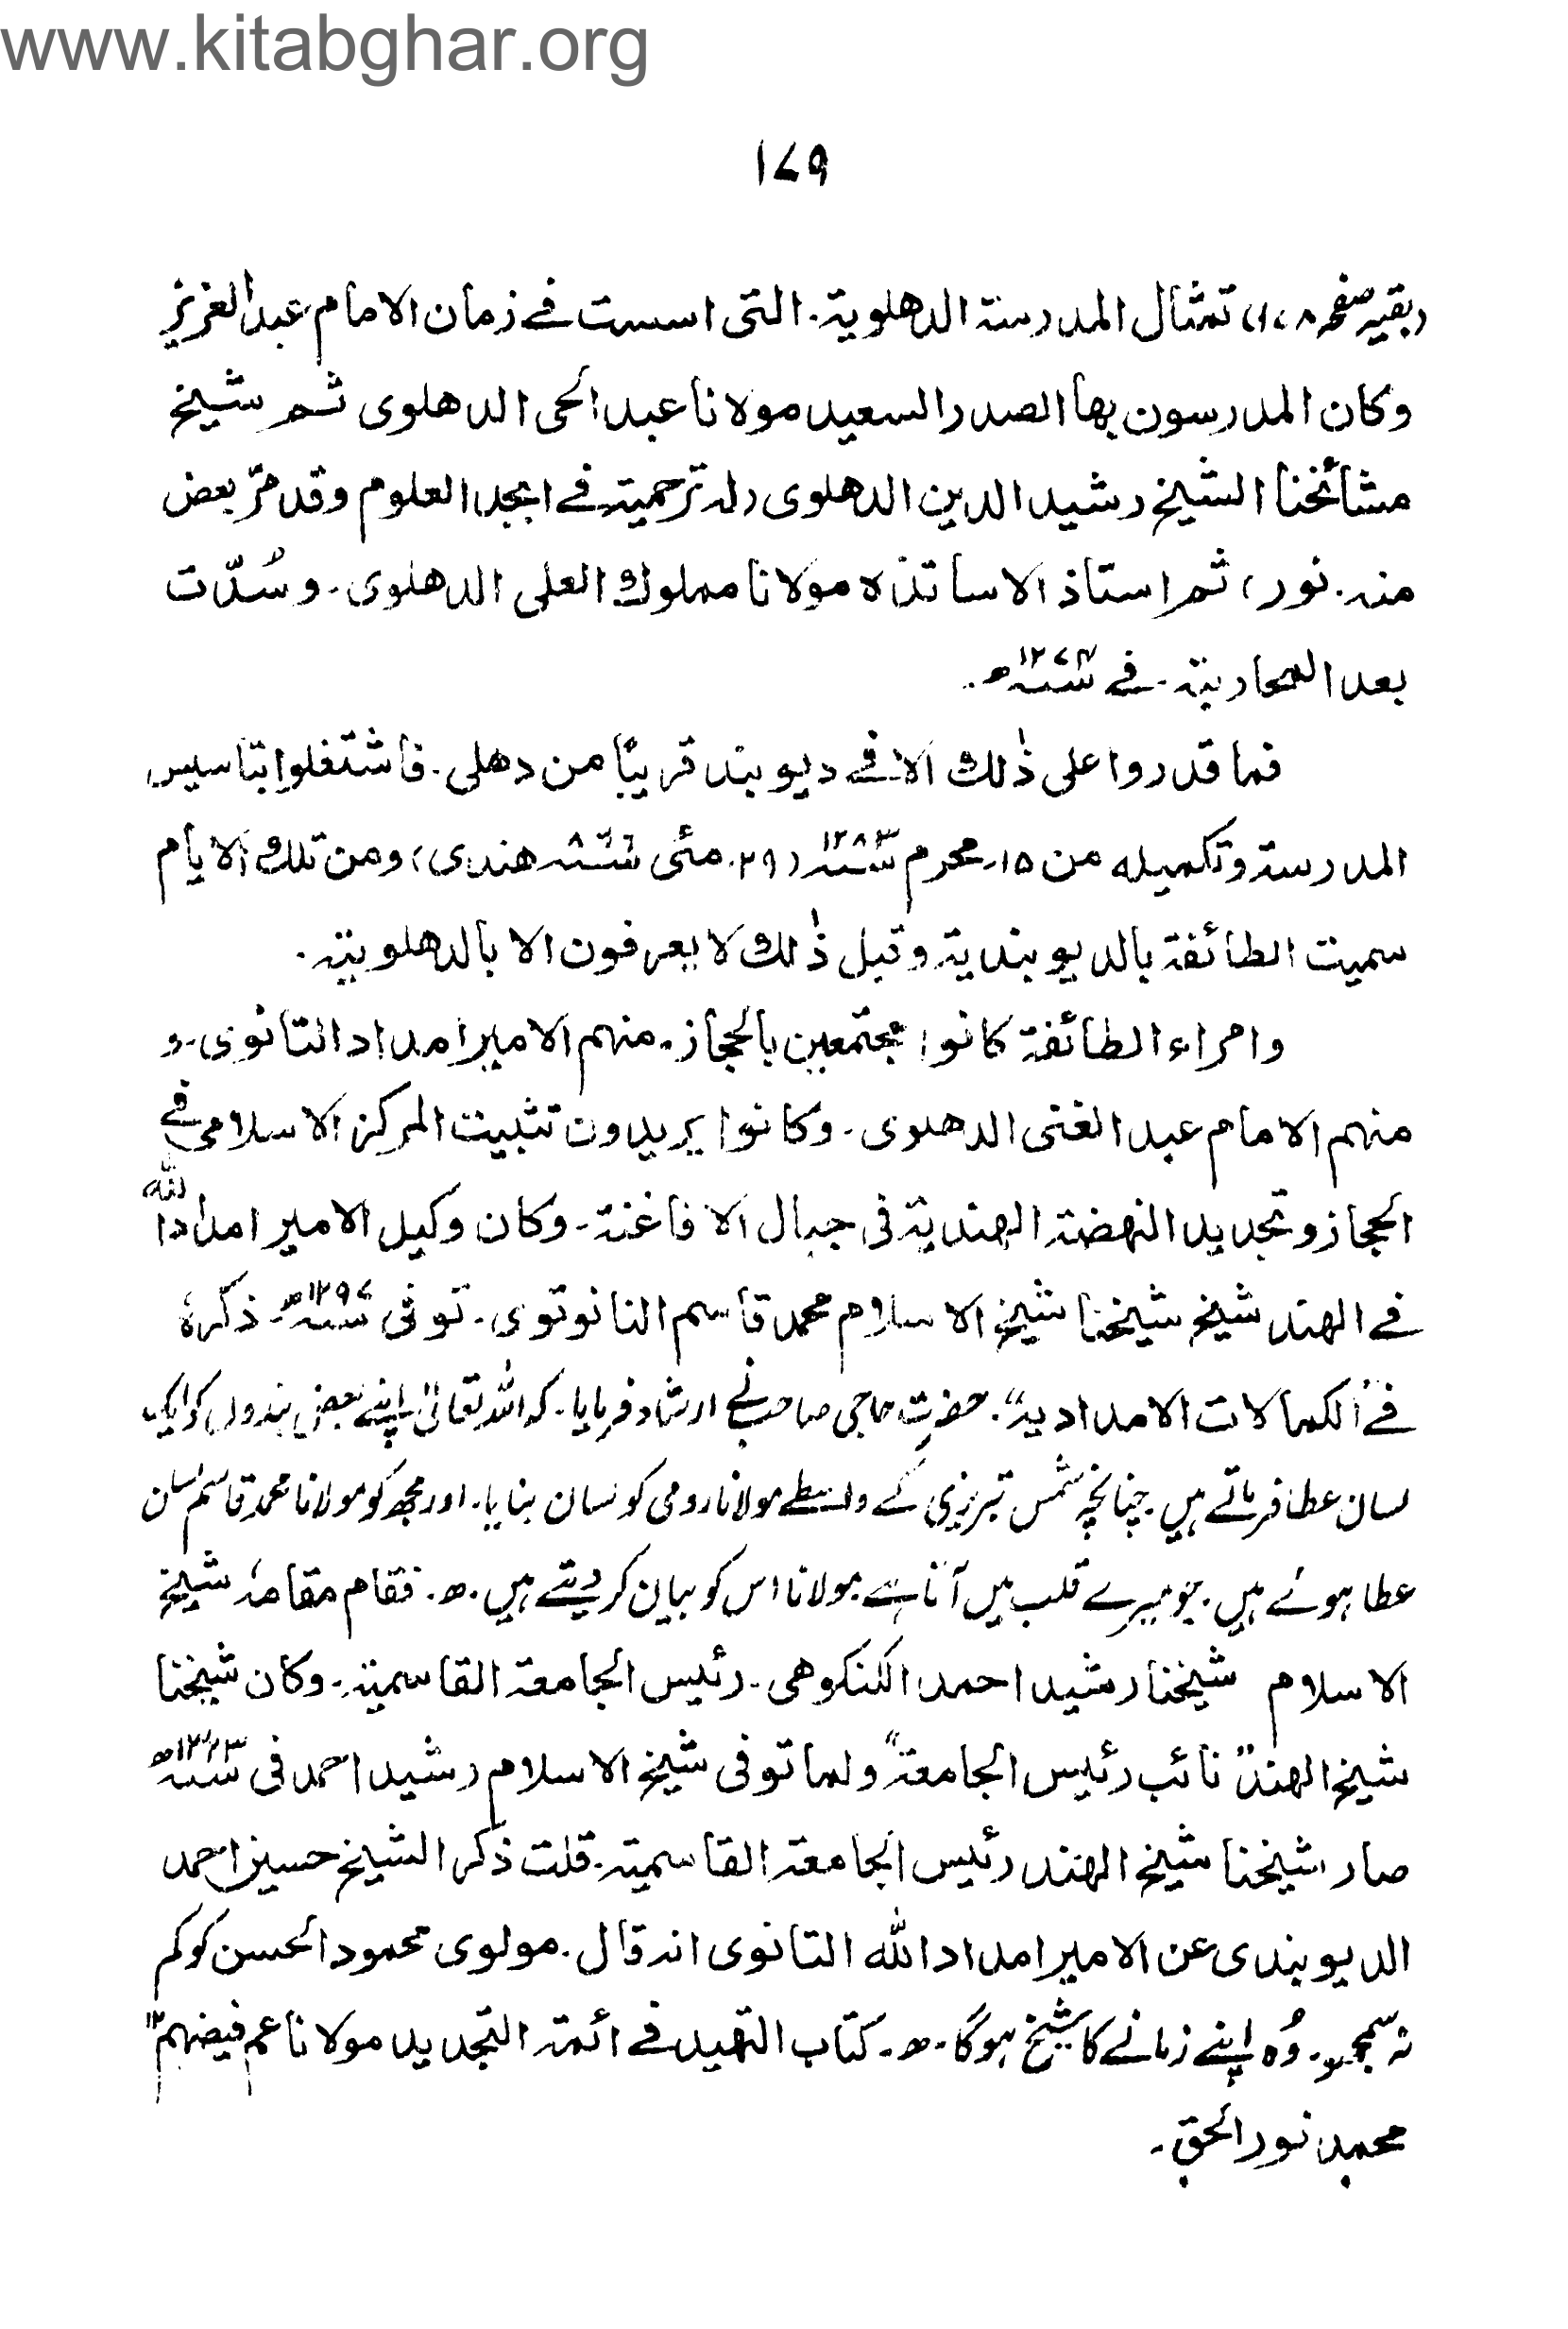 www.kitabghar.org
۱۷۹
(بقیہ صفحہ ۱۷۸) تمثال المدرسة الدهلوية۔ التی اسست فے زمان الامام عبدالعزیز
وکان المدرسون بها الصدر السعید مولانا عبدالحی الدهلوی ثم شیخ
مشائخنا الشیخ رشید الدین الدهلوی (لہ ترجمة فے ابجد العلوم وقد مرّ بعض
منہ۔ نور) ثم استاذ الاساتذہ مولانا مملوک العلی الدهلوی۔ وسُدّت
بعد المحاربة۔ فے ۱۲۷۴ھ۔
فما قدروا علی ذٰلک الا فے دیوبند قریبًا من دهلی۔ فاشتغلوا بتاسیس
المدرسة وتکمیله من ۱۵۔ محرم ۱۲۸۳ھ (۲۹۔ مئی ھندی) ومن تلک الایام
سمیت الطائفة بالدیوبندیة وقبل ذٰلک لا یعرفون الا بالدهلویة۔
وامراء الطائفة کانوا مجتمعین بالحجاز۔ منہم الامیر امداد التانوی۔ و
منہم الامام عبدالغنی الدهلوی۔ وکانوا یریدون تثبیت المرکز الاسلامی فے
الحجاز وتجدید النهضة الهندیة فی جبال الافاغنة۔ وکان وکیل الامیر امداد اللہ
فے الهند شیخ شیخنا شیخ الاسلام محمد قاسم النانوتوی۔ توفی ۱۲۹۷ھ۔ ذکرہٗ
فے "الکمالات الامدادیہ"۔ حضرت حاجی صاحب نے ارشاد فرمایا۔ کہ اللہ تعالیٰ اپنے بعض بندوں کو ایک
لسان عطا فرماتے ہیں۔ چنانچہ شمس تبریزی کے واسطے مولانا رومی کو لسان بنایا۔ اور مجھ کو مولانا محمد قاسم لسان
عطا ہوئے ہیں۔ جو میرے قلب میں آتا ہے مولانا اس کو بیان کر دیتے ہیں۔ ھ۔ فقام مقامہٗ شیخ
الاسلام شیخنا رشید احمد الکنکوھی۔ رئیس الجامعة القاسمیة۔ وکان شیخنا
شیخ الهند" نائب رئیس الجامعة" ولما توفی شیخ الاسلام رشید احمد فی ۱۳۲۳ھ
صار شیخنا شیخ الهند رئیس الجامعة القاسمیة۔ قلت ذکر الشیخ حسین احمد
الدیوبندی عن الامیر امداد اللہ التانوی انہ قال۔ مولوی محمود الحسن کو کم
نہ سمجھو۔ وُہ اپنے زمانے کا شیخ ہوگا۔ ھ۔ کتاب التمہید فے ائمة التجدید مولانا عم فیضہم"
محمد نور الحق۔